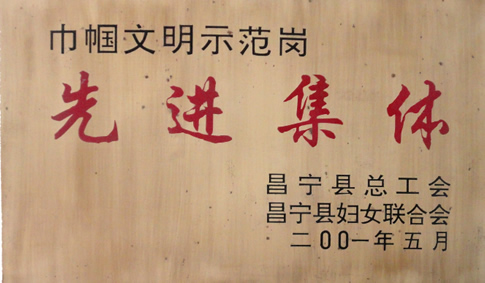 巾帼文明示范岗
先进集体
昌宁县总工会
昌宁县妇女联合会
二00一年五月